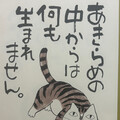 あきらめの
中からは
何も
生まれ
ません。